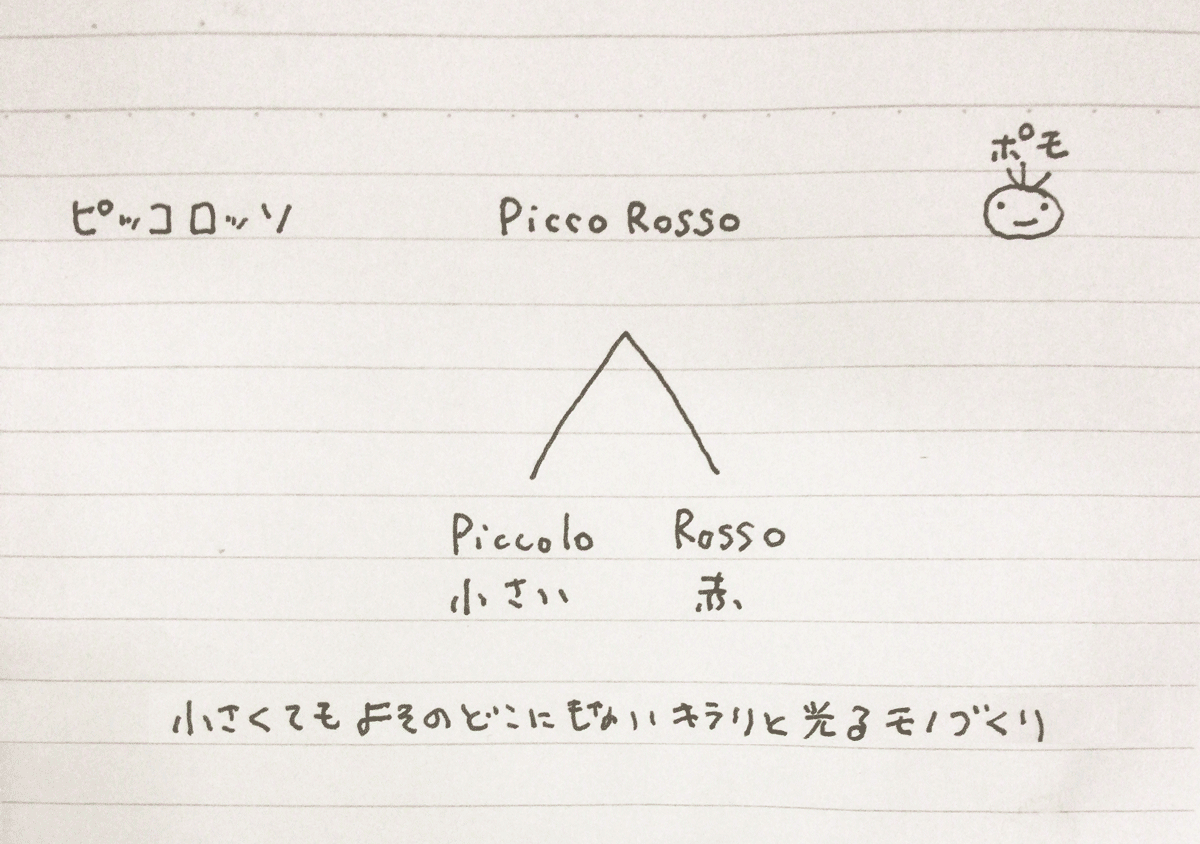 ポモ
ピッコロッソ Picco Rosso
Piccolo Rosso
小さい 赤
小さくてもよそのどこにもないキラリと光るモノづくり